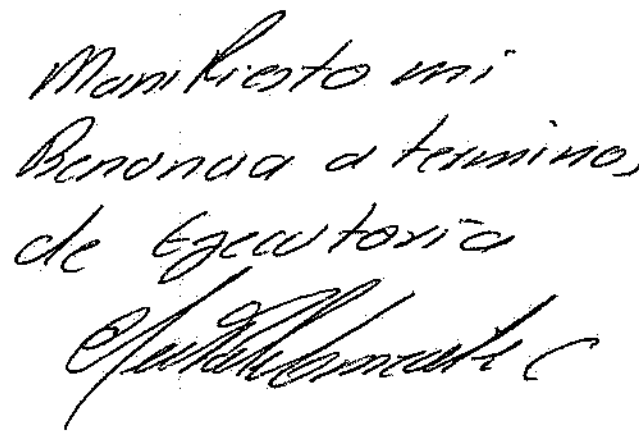 Manifiesto mi
Renuncia a terminos
de Ejecutoria